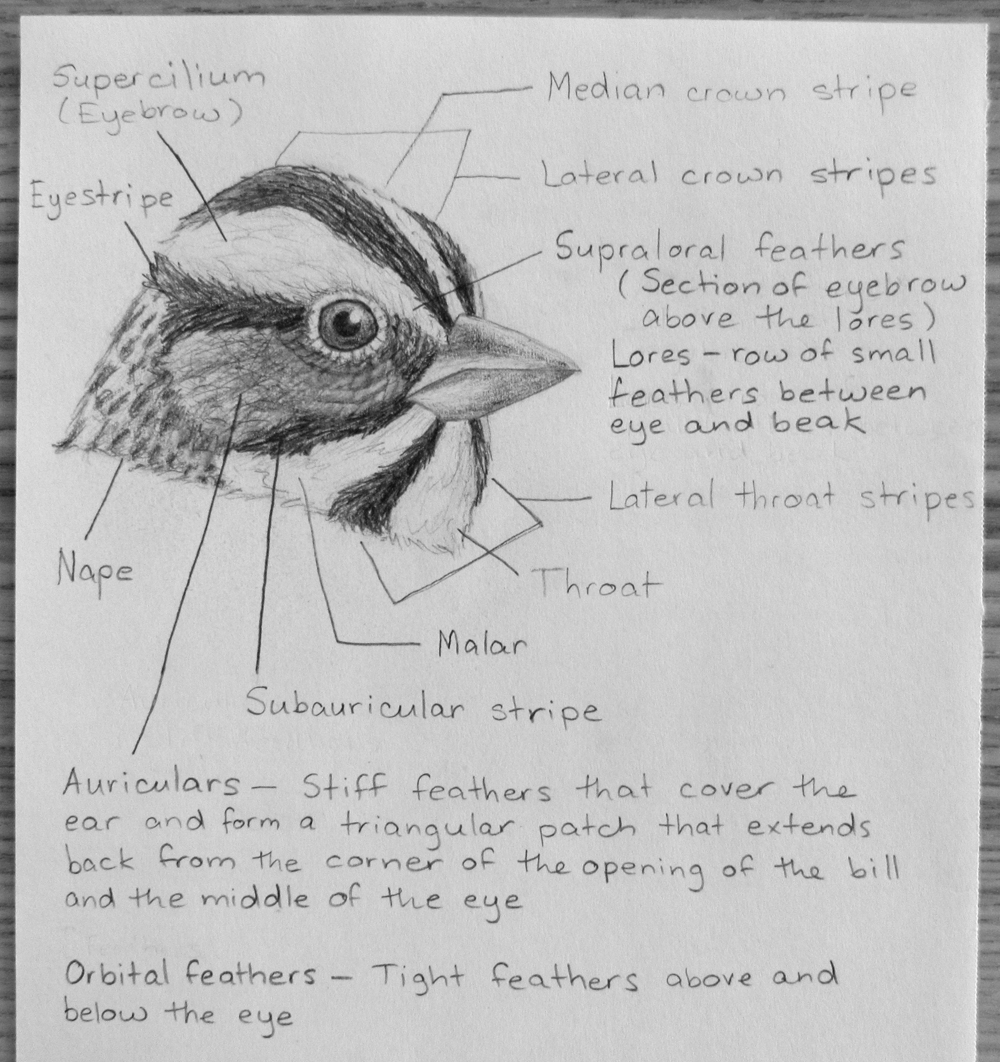 Supercilium
(Eyebrow)
Eyestripe
Median crown stripe
Lateral crown stripes
Supraloral feathers
(Section of eyebrow
above the lores)
Lores – row of small
feathers between
eye and beak
Lateral throat stripes
Throat
Nape
Malar
Subauricular stripe
Auriculars – Stiff feathers that cover the
ear and form a triangular patch that extends
back from the corner of the opening of the bill
and the middle of the eye
Orbital feathers – Tight feathers above and
below the eye